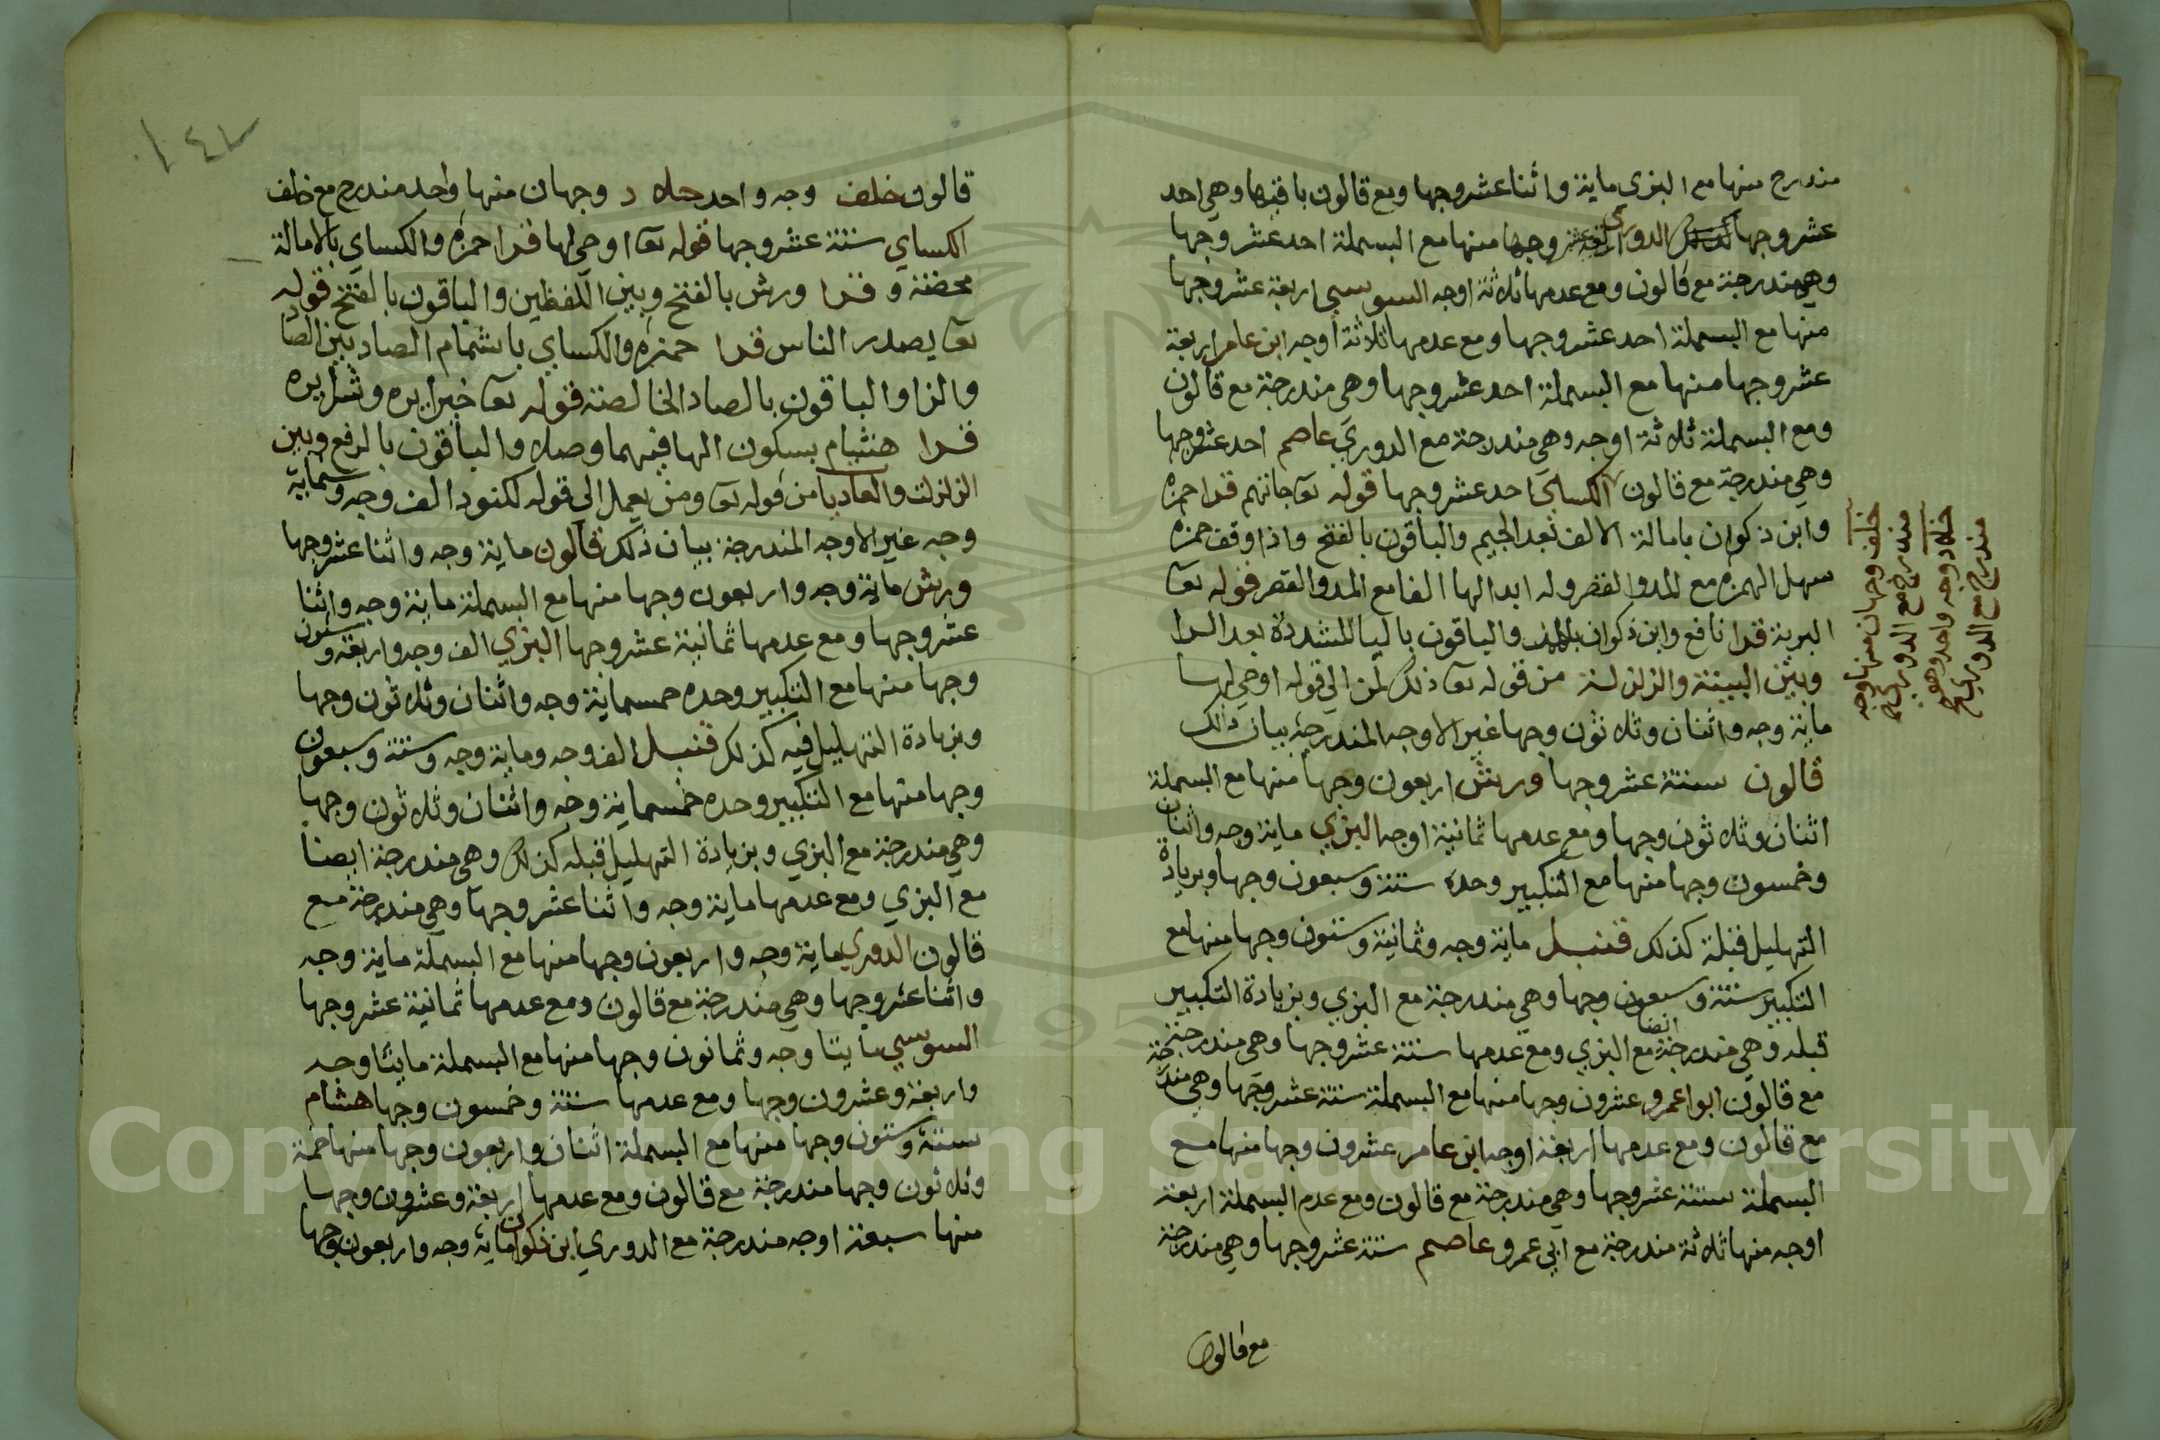 مندرج منها مع البزي ماية واثنا عشر وجها ومع قالون باقيها وهي احد
عشر وجها الدوري اربعة عشر وجها منها مع البسملة احد عشر وجها
وهي مندرجة مع قالون ومع عدمها ثلاثة اوجه السوسي اربعة عشر وجها
منها مع البسملة احد عشر وجها ومع عدمها ثلاثة اوجه ابن عامر اربعة
عشر وجها منها مع البسملة احد عشر وجها وهي مندرجة مع قالون
ومع البسملة ثلاثة اوجه وهي مندرجة مع الدوري عاصم احد عشر وجها
وهي مندرجة مع قالون الكساي احد عشر وجها قوله تعا جاتهم قرا حمزه
وابن ذكوان بامالة الالف بعد الجيم والباقون بالفتح واذا وقف حمزه
سهل الهمزه مع المد والقصر وله ابدالها الفا مع المد والقصر قوله تعا
البرية قرا نافع وابن ذكوان والباقون باليا المشددة بعد الرا
وبين البينة والزلزلة من قوله تعا ذلك لمن الي قوله اوحي لها
ماية وجه واثنان وثلاثون وجها غير الاوجه المندرجة بيان ذالك
قالون ستة عشر وجها ورش اربعون وجها منها مع البسملة
اثنان وثلاثون وجها ومع عدمها ثمانية اوجه البزي ماية وجه واثنان
وخمسون وجها منها مع التكبير وحده ستة وسبعون وجها وبزيادة
التهليل قبلة كذلك قنبل ماية وجه وثمانية وستون وجها منها مع
التكبير ستة وسبعون وجها وهي مندرجة مع البزي وبزيادة التكبير
قبله وهي مندرجة ايضا مع البزي ومع عدمها ستة عشر وجها وهي مندرجة
مع قالون ابوا عمرو عشرون وجها منها مع البسملة ستة عشر وجها وهي مندرجة
مع قالون ومع عدمها اربعة اوجه ابن عامر عشرون وجها منها مع
البسملة ستة عشر وجها وهي مندرجة مع قالون ومع عدم البسملة اربعة
اوجه منها ثلاثة مندرجة مع ابي عمرو عاصم ستة عشر وجها وهي مندرجة
مع قالون
خلف وجهان منها وجه
مندرج مع الدوري
خلاد وجه واحد وهو
مندرج مع الدوري
١٤٢
قالون خلف وجه واحد خلاد وجهان منها واحد مندرج مع خلف
الكساي ستة عشر وجها قوله تعا اوحي لها قرا حمزه والكساي بالامالة
محضة وقرا ورش بالفتح وبين اللفظين والباقون بالفتح قوله
تعا يصدر الناس قرا حمزه والكساي باشمام الصاد بين الصاد
والزا والباقون بالصاد الخالصة قوله تعا خيرا يره وشرا يره
قرا هشام بسكون الها فيهما وصلا والباقون بالرفع وبين
الزلزلت والعاديا من قوله تعا ومن يعمل الي قوله لكنود الف وجه وستماية
وجه غير الاوجه المندرجة بيان ذلك قالون ماية وجه واثنا عشر وجها
ورش ماية وجه واربعون وجها منها مع البسملة ماية وجه واثنا
عشر وجها ومع عدمها ثمانية عشر وجها البزي الف وجه واربعة وستون
وجها منها مع التكبير وحده خمسماية وجه واثنان وثلاثون وجها
وبزيادة التهليل فيه كذلك قنبل الف وجه وماية وجه وستة وسبعون
وجها منها مع التكبير وحده خمسماية وجه واثنان وثلاثون وجها
وهي مندرجة مع البزي وبزيادة التهليل قبله كذلك وهي مندرجة ايضا
مع البزي ومع عدمها ماية وجه واثنا عشر وجها وهي مندرجة مع
قالون الدوري ماية وجه واربعون وجها منها مع البسملة ماية وجه
واثنا عشر وجها وهي مندرجة مع قالون ومع عدمها ثمانية عشر وجها
السوسي مايتا وجه وثمانون وجها منها مع البسملة مايتا وجه
واربعة وعشرون وجها ومع عدمها ستة وخمسون وجها هشام
ستة وستون وجها منها مع البسملة اثنان واربعون وجها منها خمة
وثلاثون وجها مندرجة مع قالون ومع عدمها اربعة وعشرون وجها
منها سبعة اوجه مندرجة مع الدوري ابن ذكوان ماية وجه واربعون وجها